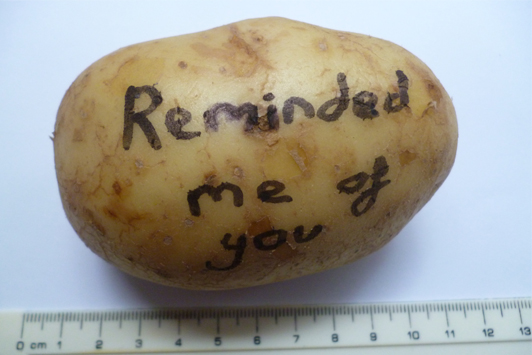 Reminded
me of
you
0 cm 1 2 3 4 5 6 7 8 9 10 11 12 13